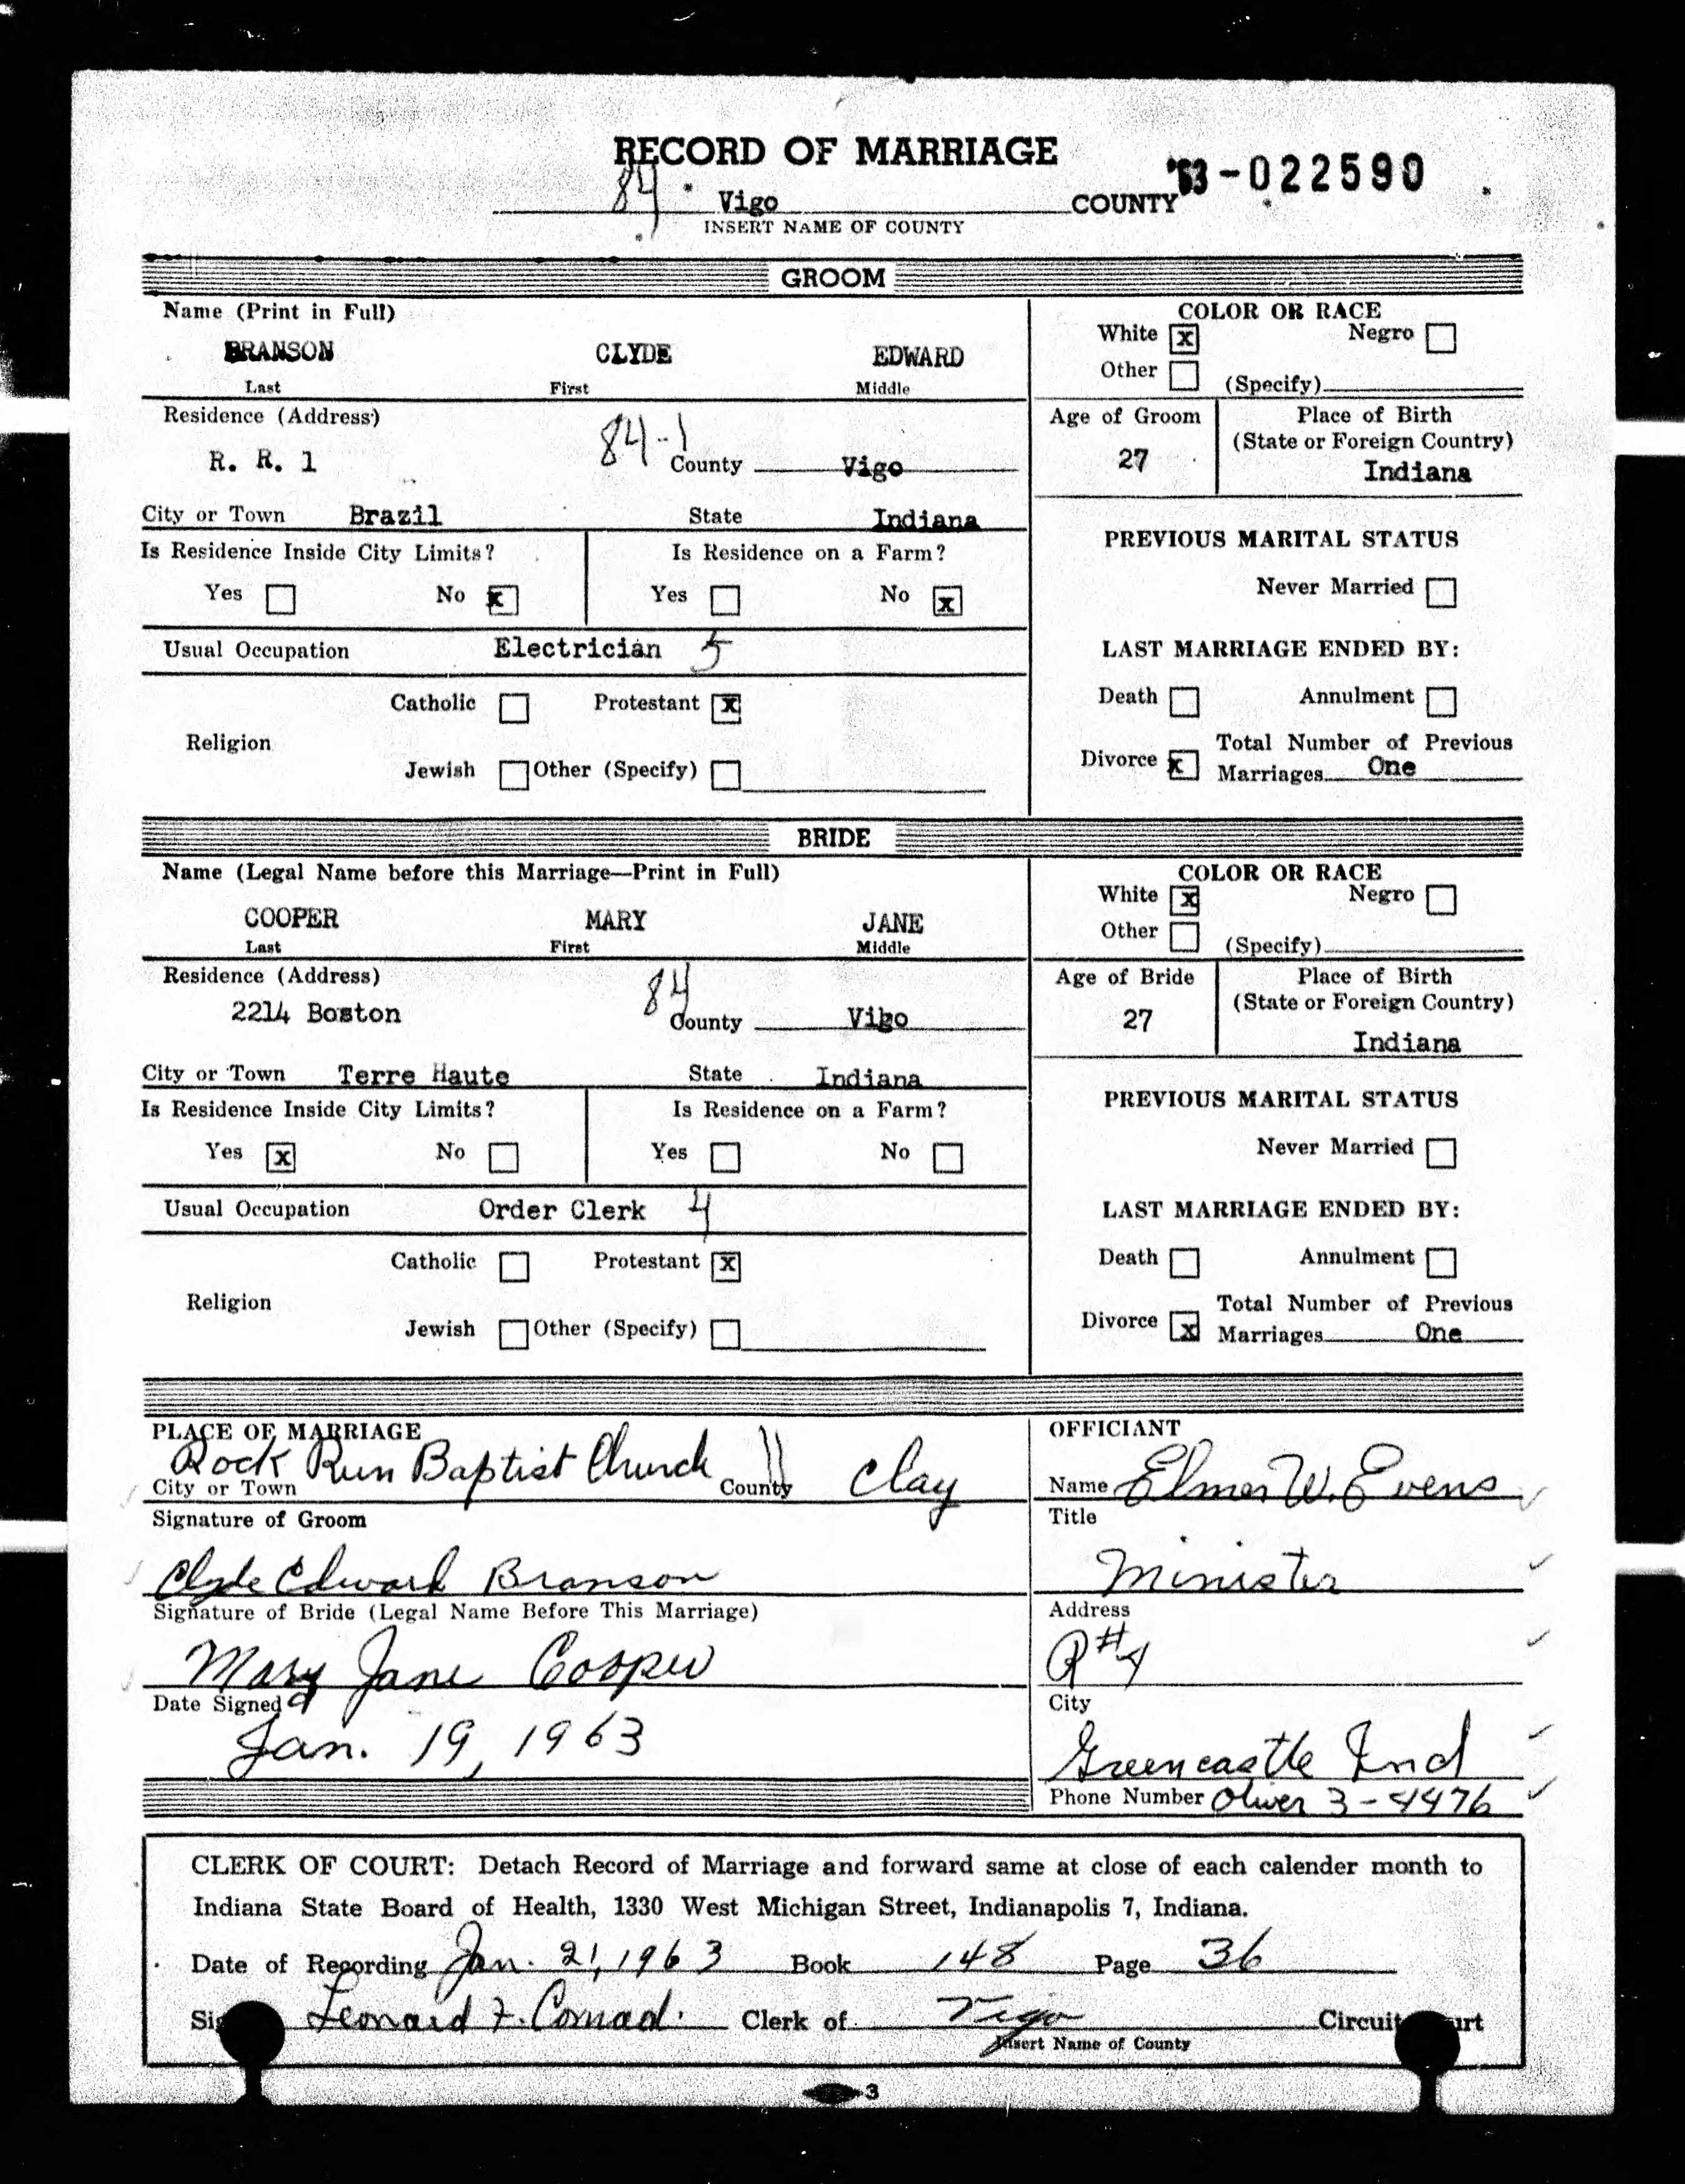 RECORD OF MARRIAGE
'63-022590
84 Vigo COUNTY
INSERT NAME OF COUNTY
GROOM
Name (Print in Full)
BRANSON CLYDE EDWARD
Last First Middle
COLOR OR RACE
White x Negro
Other (Specify)
Residence (Address)
R. R. 1 84-1 County Vigo
Age of Groom
27
Place of Birth
(State or Foreign Country)
Indiana
City or Town Brazil State Indiana
Is Residence Inside City Limits? Is Residence on a Farm?
Yes No x Yes No x
PREVIOUS MARITAL STATUS
Never Married
Usual Occupation Electrician 5
LAST MARRIAGE ENDED BY:
Catholic Protestant x
Religion
Jewish Other (Specify)
Death Annulment
Divorce x Total Number of Previous
Marriages One
BRIDE
Name (Legal Name before this Marriage—Print in Full)
COOPER MARY JANE
Last First Middle
COLOR OR RACE
White x Negro
Other (Specify)
Residence (Address)
2214 Boston 84 County Vigo
Age of Bride
27
Place of Birth
(State or Foreign Country)
Indiana
City or Town Terre Haute State Indiana
Is Residence Inside City Limits? Is Residence on a Farm?
Yes x No Yes No
PREVIOUS MARITAL STATUS
Never Married
Usual Occupation Order Clerk 4
LAST MARRIAGE ENDED BY:
Catholic Protestant x
Religion
Jewish Other (Specify)
Death Annulment
Divorce x Total Number of Previous
Marriages One
PLACE OF MARRIAGE
Rock Run Baptist Church 11 Clay
City or Town County
Signature of Groom
Clyde Edward Branson
Signature of Bride (Legal Name Before This Marriage)
Mary Jane Cooper
Date Signed
Jan. 19, 1963
OFFICIANT
Name Elmer W. Evens
Title
Minister
Address
R#4
City
Greencastle Ind
Phone Number Oliver 3-4476
CLERK OF COURT: Detach Record of Marriage and forward same at close of each calender month to
Indiana State Board of Health, 1330 West Michigan Street, Indianapolis 7, Indiana.
Date of Recording Jan. 21, 1963 Book 148 Page 36
Leonard F. Conrad. Clerk of Vigo Circuit
Insert Name of County
3